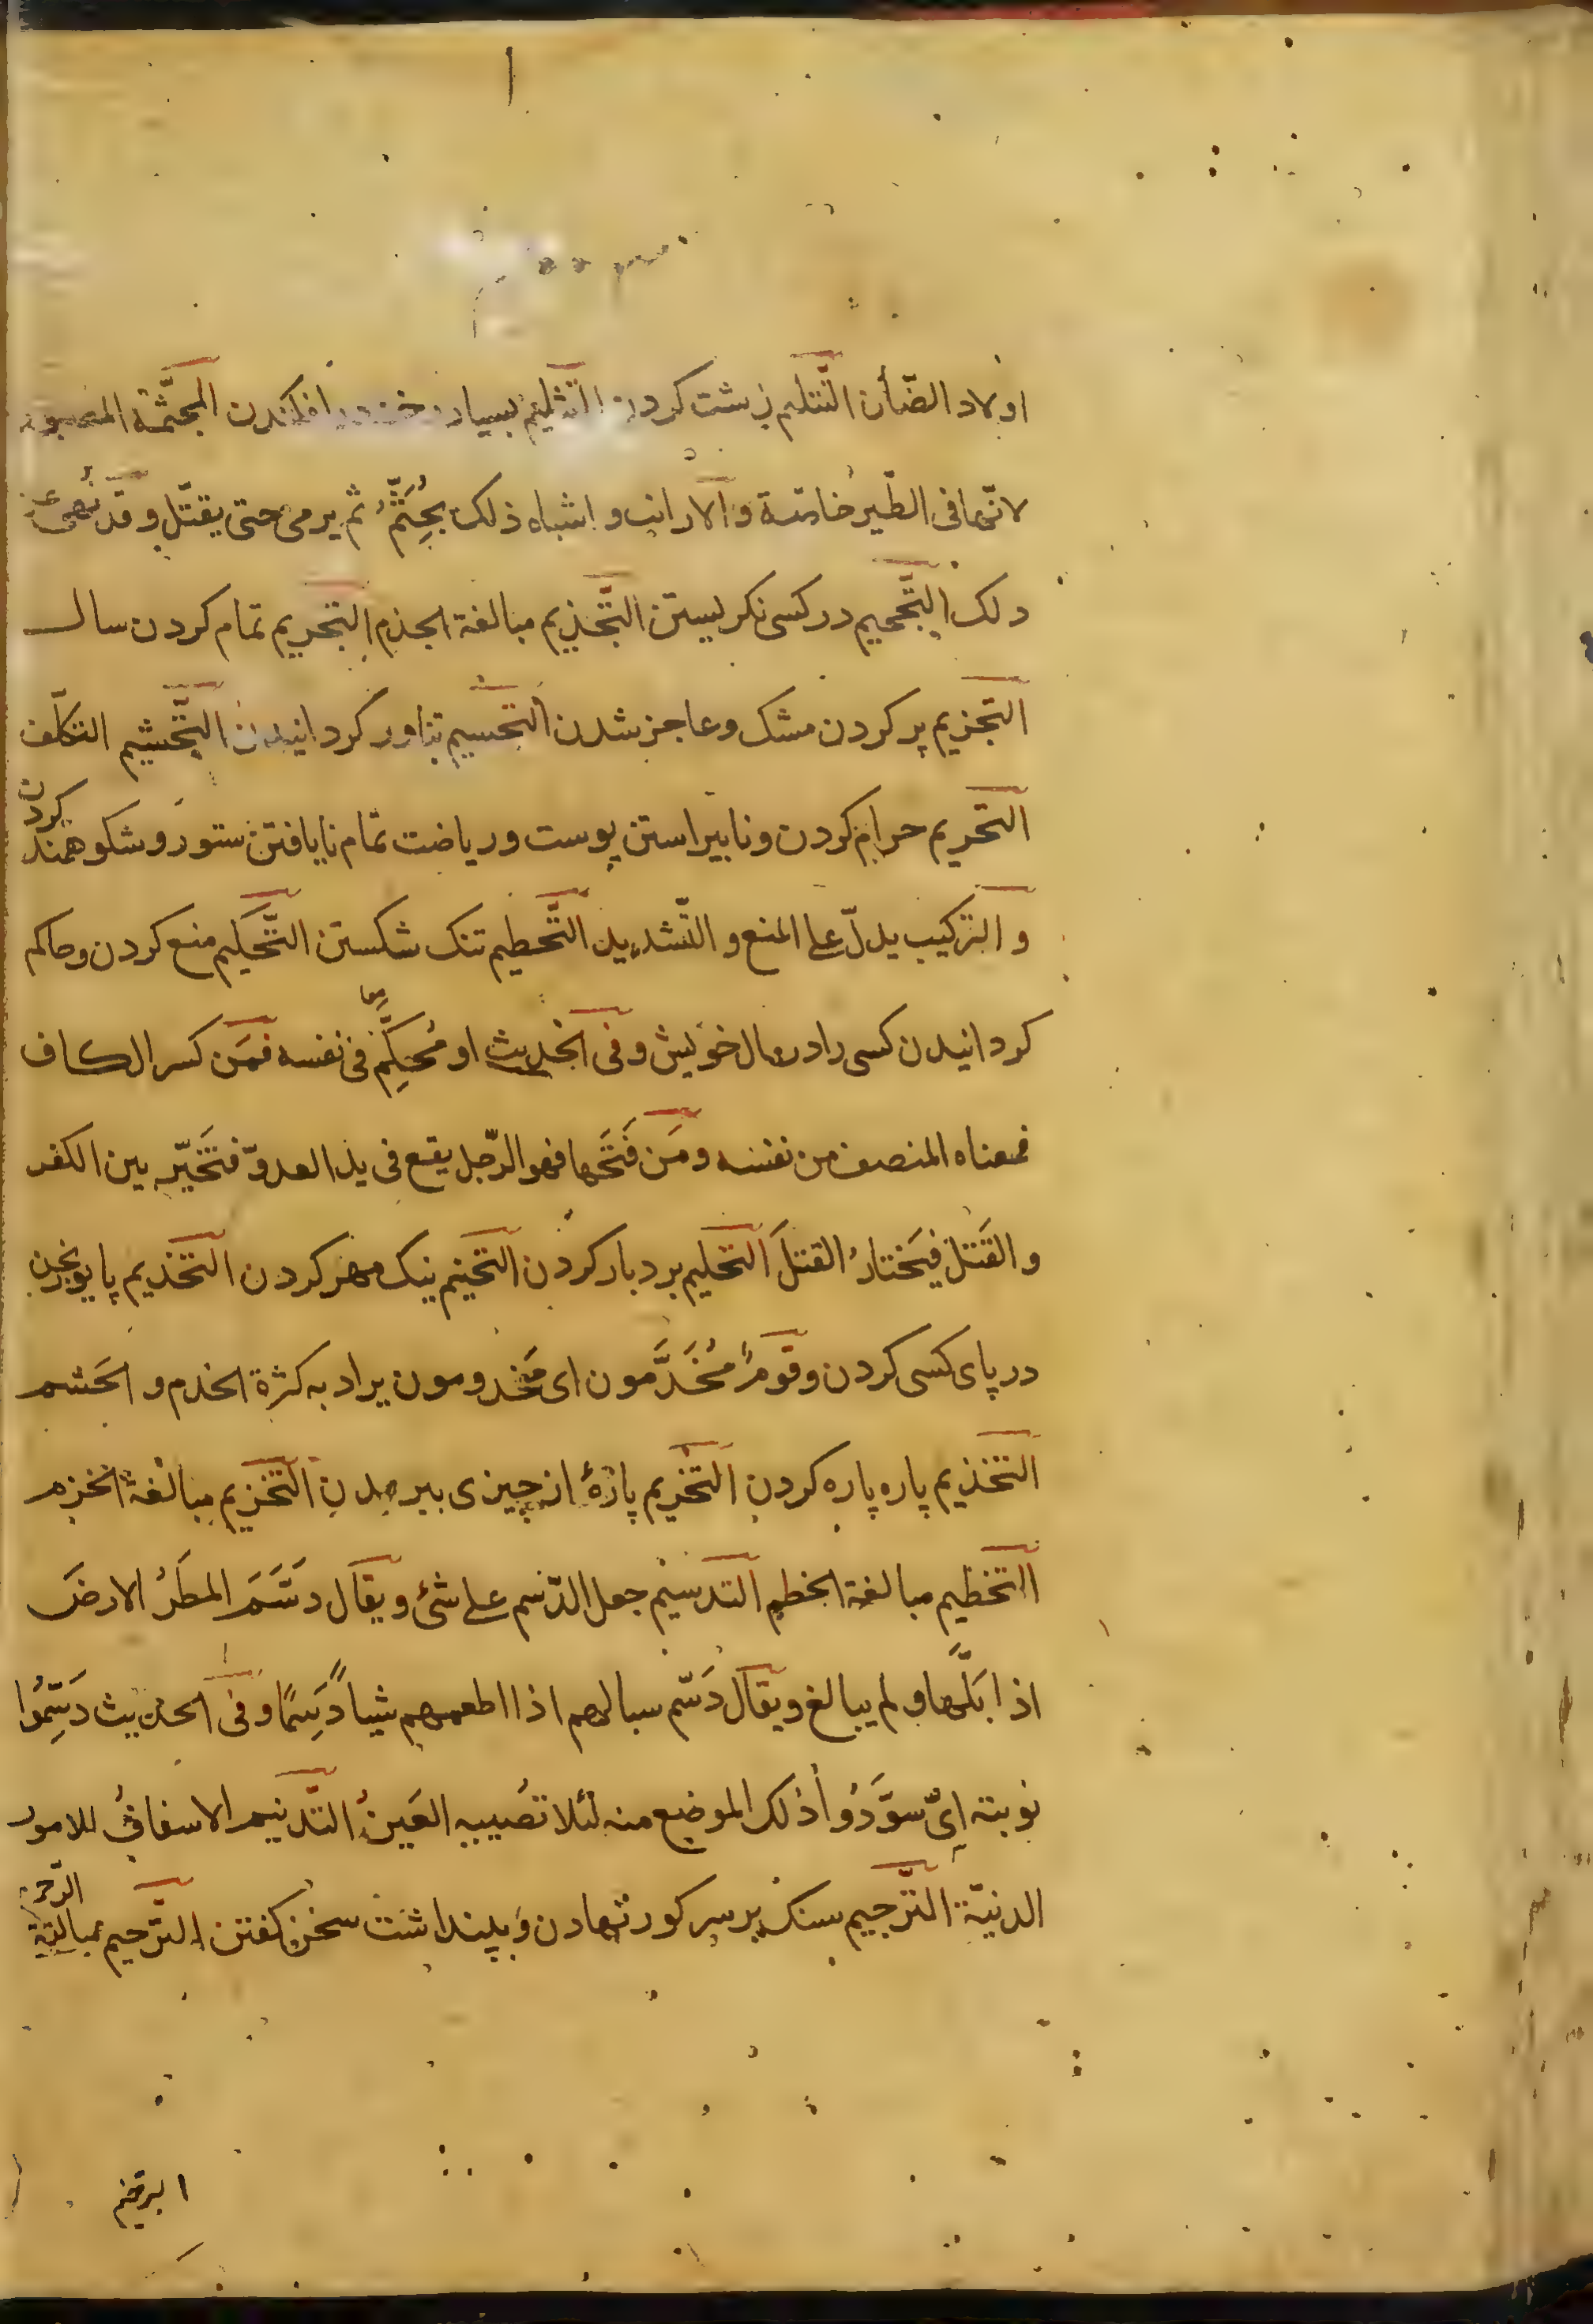 اولاد الضّأن التّثلیم زشت کردن التّثلیم بسیار رخنه درافکندن المجثّمة المصبورة
لانّها فی الطّیر خاصّة و الارانب و اشباه ذلک یُجَثَّمُ ثم یرمی حتی یقتل و قد نُهی عن
ذلک التّجحیم در کسی نکریستن التّجذیم مبالغة الجذم التجریم تمام کردن سال
التجزیم پر کردن مشک و عاجز شدن التجسیم تناور کردانیدن التّجشیم التکلّف
التحریم حرام کردن و نابیراستن پوست و ریاضت تمام نایافتن ستور و شکوهمند کردن
و الترکیب یدلّ علی المنع و التّشدید التّحطیم تنک شکستن التّحکیم منع کردن و حاکم
کردانیدن کسی را در مال خویش و فی الحدیث او مُحکِّم فی نفسه فمَن کسر الکاف
فمعناه المنصف من نفسه و مَن فَتَحها فهو الرّجل یقع فی ید العدوّ فتَخیّر بین الکفر
و القَتل فیَختارُ القتلَ التحلیم بردبار کردن التختیم نیک مهر کردن التخدیم پای‌ورنجن
در پای کسی کردن و قومٌ مُخَدَّمون ای مَخدومون یراد به کثرة الخدم و الحَشم
التخذیم پاره پاره کردن التّخریم پارهٔ از چیزی ببریدن التّخزیم مبالغة الخزم
التخطیم مبالغة الخطم التدسیم جعل الدّسم علی شیٔ و یقال دَسَّمَ المطَرُ الارضَ
اذا بَلَّها و لم یبالغ و یقال دَسّم سبالهم اذا اطعمهم شیئاً دَسِمًا و فی الحدیث دَسِّمُوا
نونته ایّ سوَّدُوا ذلک الموضع منه لئلا تصُیبه العَینُ التّدنیم الاسفافُ للامور
الدنیّة التّرجیم سنک بر سر کور نهادن و بپنداشت سخن کفتن التّرحیم مبالغة الرّحم
الترخیم